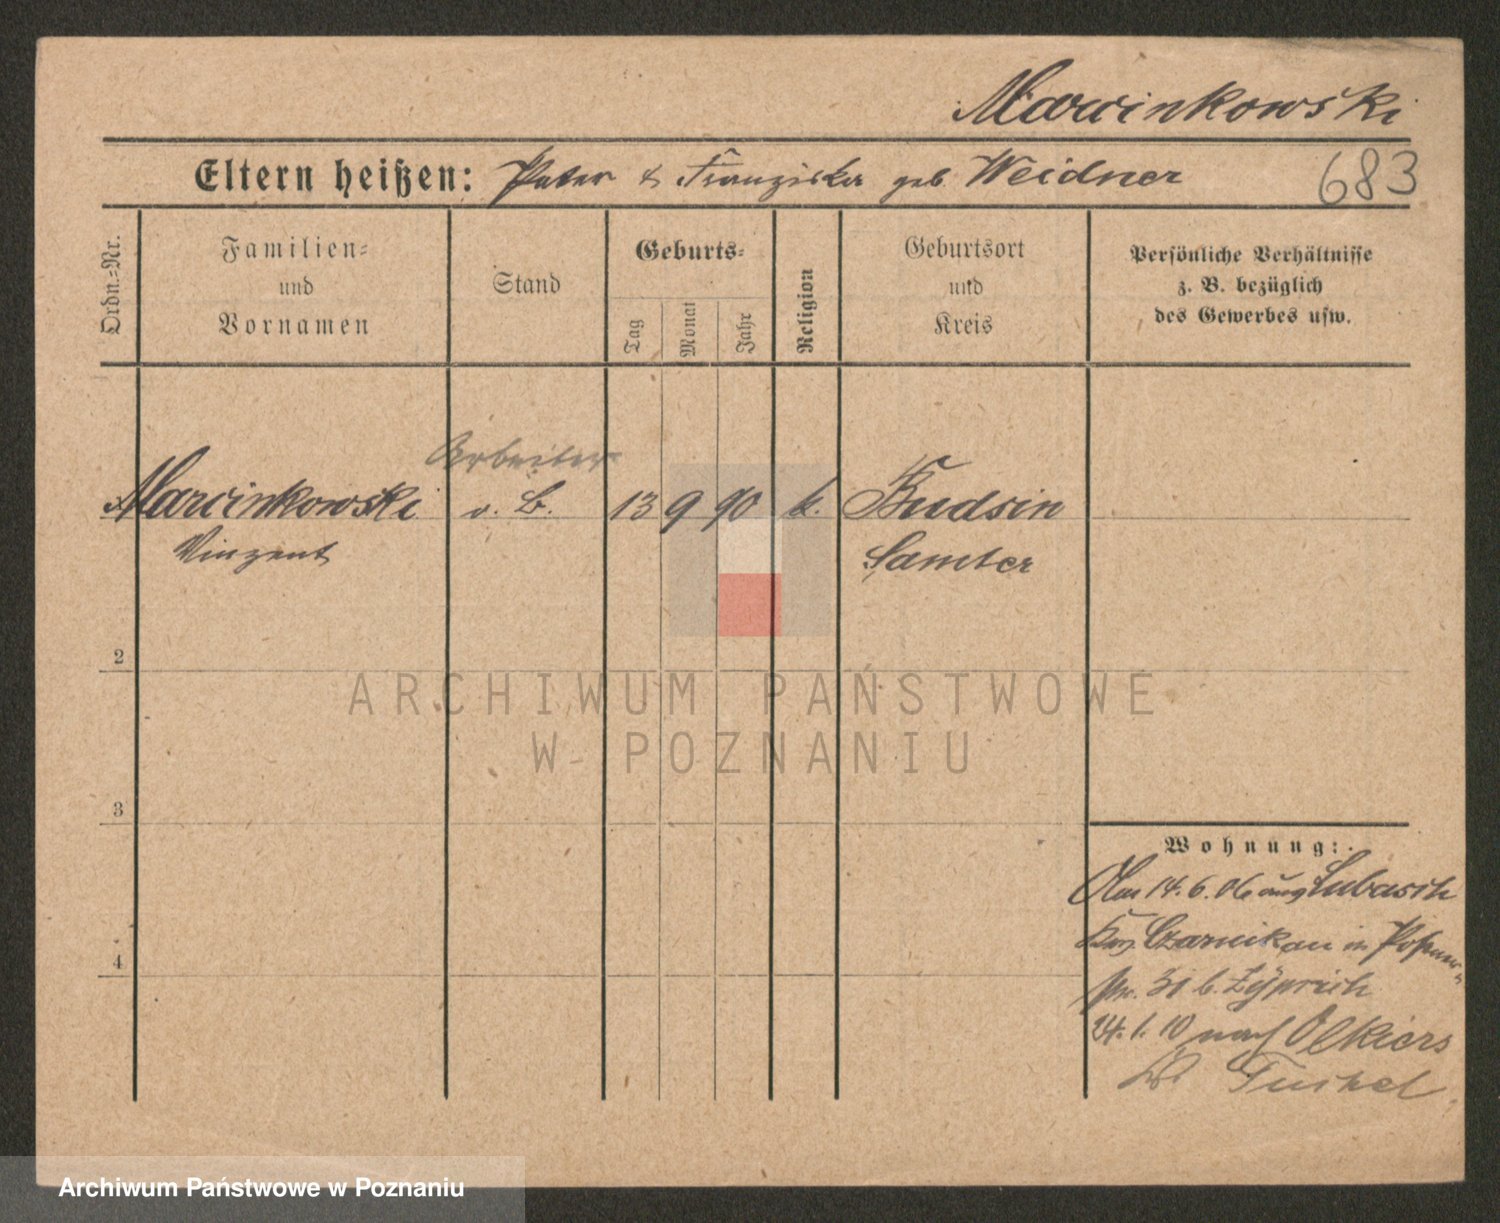 Marcinkowski
Eltern heißen: Peter & Franziska geb Weidner 683
Ordn.=Nr.
Familien=
und
Vornamen
Stand
Geburts=
Tag
Monat
Jahr
Religion
Geburtsort
und
Kreis
Persönliche Verhältnisse
z. B. bezüglich
des Gewerbes usw.
Arbeiter
Marcinkowski o. B. 13 9 90 k. Budsin
Vinzent Samter
2
ARCHIWUM PAŃSTWOWE
W POZNANIU
3
Wohnung:
Am 14. 6. 06 aus Lubasch
Krs Czarnikau in
30 b.
24. 1. 10 nach Olkiers
Tuchel
4
Archiwum Państwowe w Poznaniu